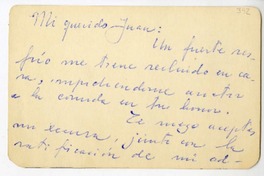 392
Mi querido Juan:
Un fuerte res-
frío me tiene recluido en ca-
sa, impidiéndome asistir
a la comida en tu honor.
Te ruego aceptes
mi excusa, junto con la
ratificación de mi ad-